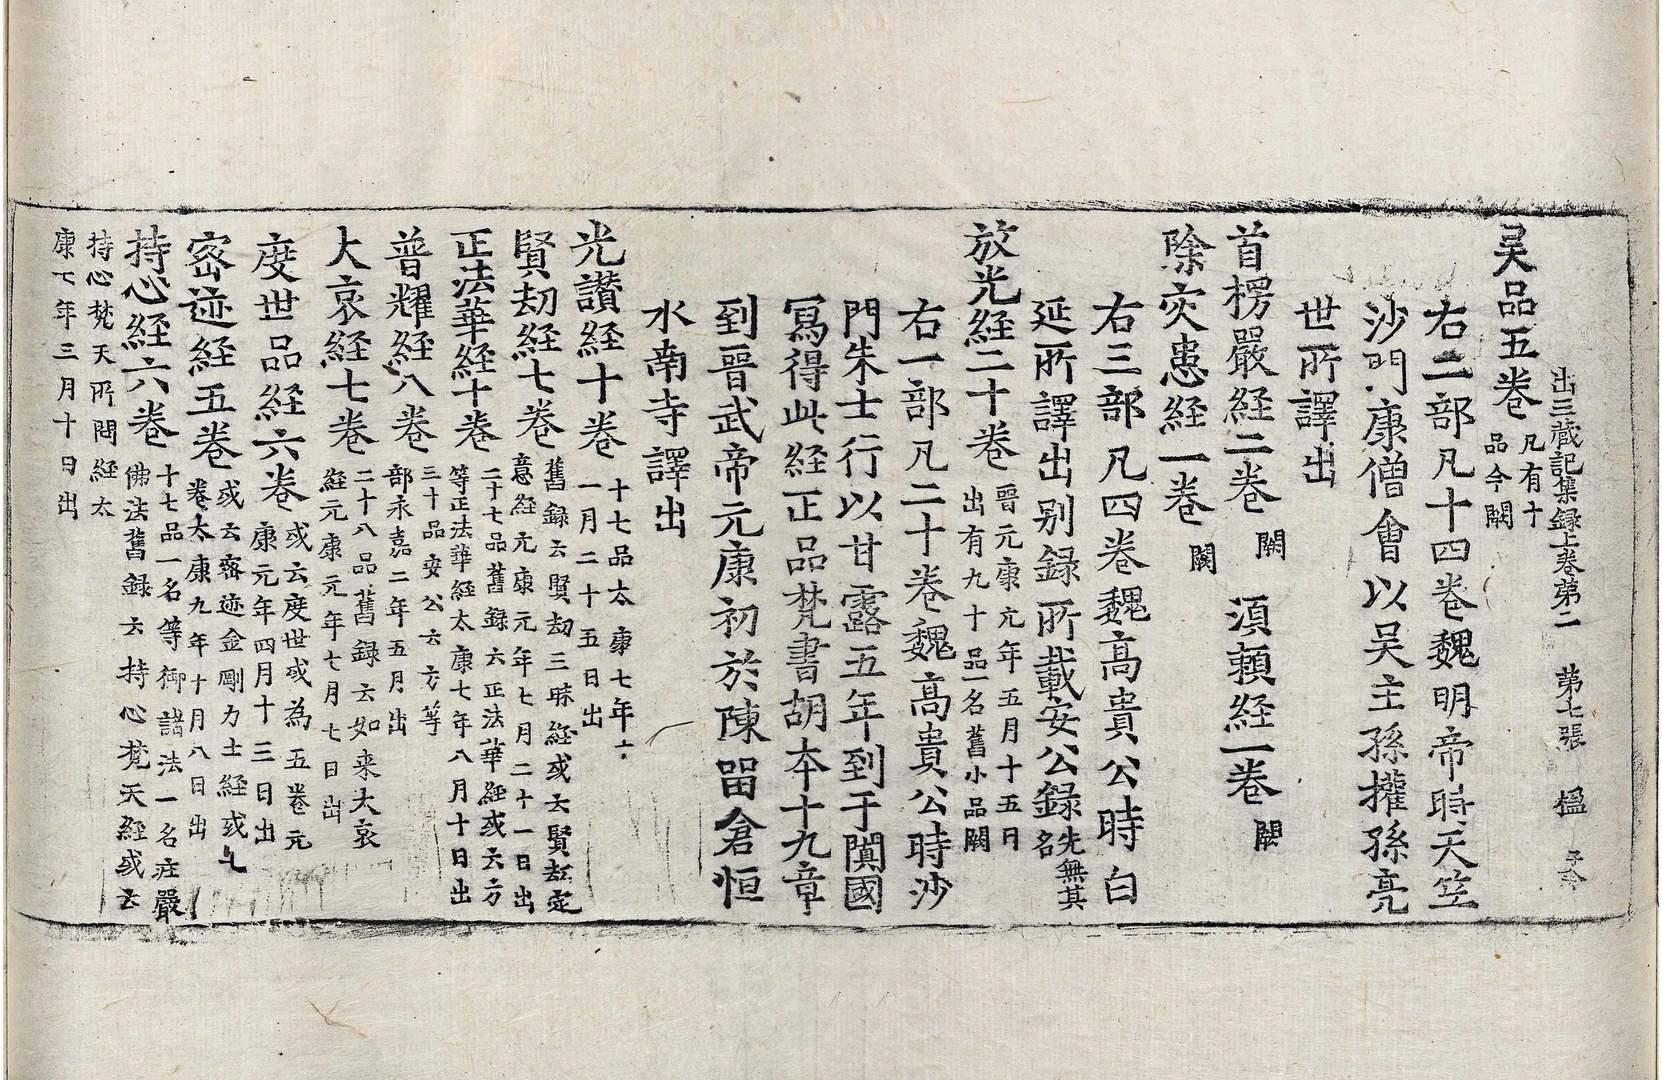 出三藏記集録上卷第二　第七張　楹
吴品五卷 凡有十品今闕
右二部凡十四卷魏明帝時天竺
沙門康僧會以吴主孫權孫亮
世所譯出
首楞嚴経二卷 闕　須頼経一卷 闕
除灾患経一卷 闕
右三部凡四卷魏高貴公時白
延所譯出别録所載安公録先無其名
放光経二十卷 晋元康元年五月十五日出有九十品一名舊小品闕
右一部凡二十卷魏高貴公時沙
門朱士行以甘露五年到于闐國
寫得此経正品梵書胡本十九章
到晋武帝元康初於陳留倉恒
水南寺譯出
光讃経十卷 十七品太康七年十一月二十五日出
賢劫経七卷 舊録云賢劫三昧経或云賢劫定意経元康元年七月二十一日出
正法華経十卷 二十七品舊録云正法華経或云方等正法華経太康七年八月十日出
普耀経八卷 三十品安公云方等部永嘉二年五月出
大哀経七卷 二十八品舊録云如来大哀経元康元年七月七日出
度世品経六卷 或云度世或為五卷元康元年四月十三日出
密迹経五卷 或云密迹金剛力士経或七卷太康九年十月八日出
持心経六卷 十七品一名等御諸法一名庄嚴佛法舊録云持心梵天経或云
持心梵天所問経太康七年三月十日出